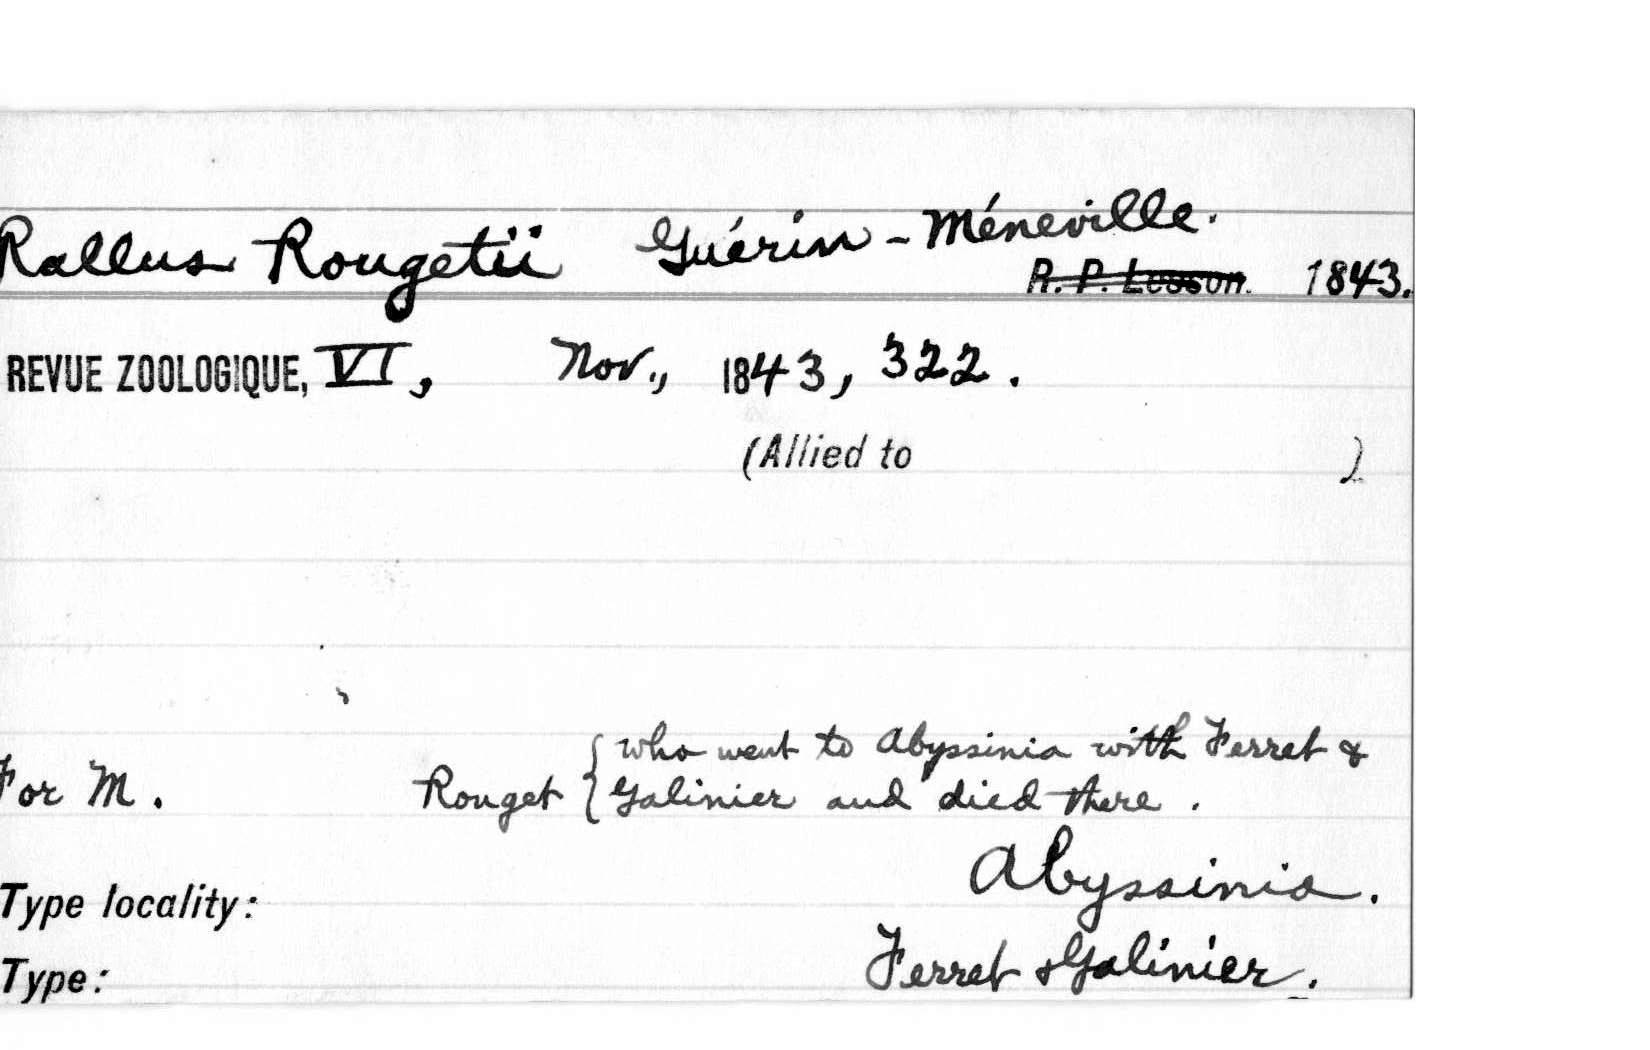 Rallus Rougetii Guérin-Méneville.
R. P. Lesson. 1843.
REVUE ZOOLOGIQUE, VI, Nov., 1843, 322.
(Allied to )
For M. Rouget { who went to Abyssinia with Ferret &
Galinier and died there.
Abyssinia.
Type locality:
Type: Ferret & Galinier.